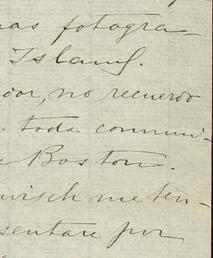 nas fotogra-
Island.
dor, no recuerdo
toda communi-
Boston.
wisch me ten-
sentare por